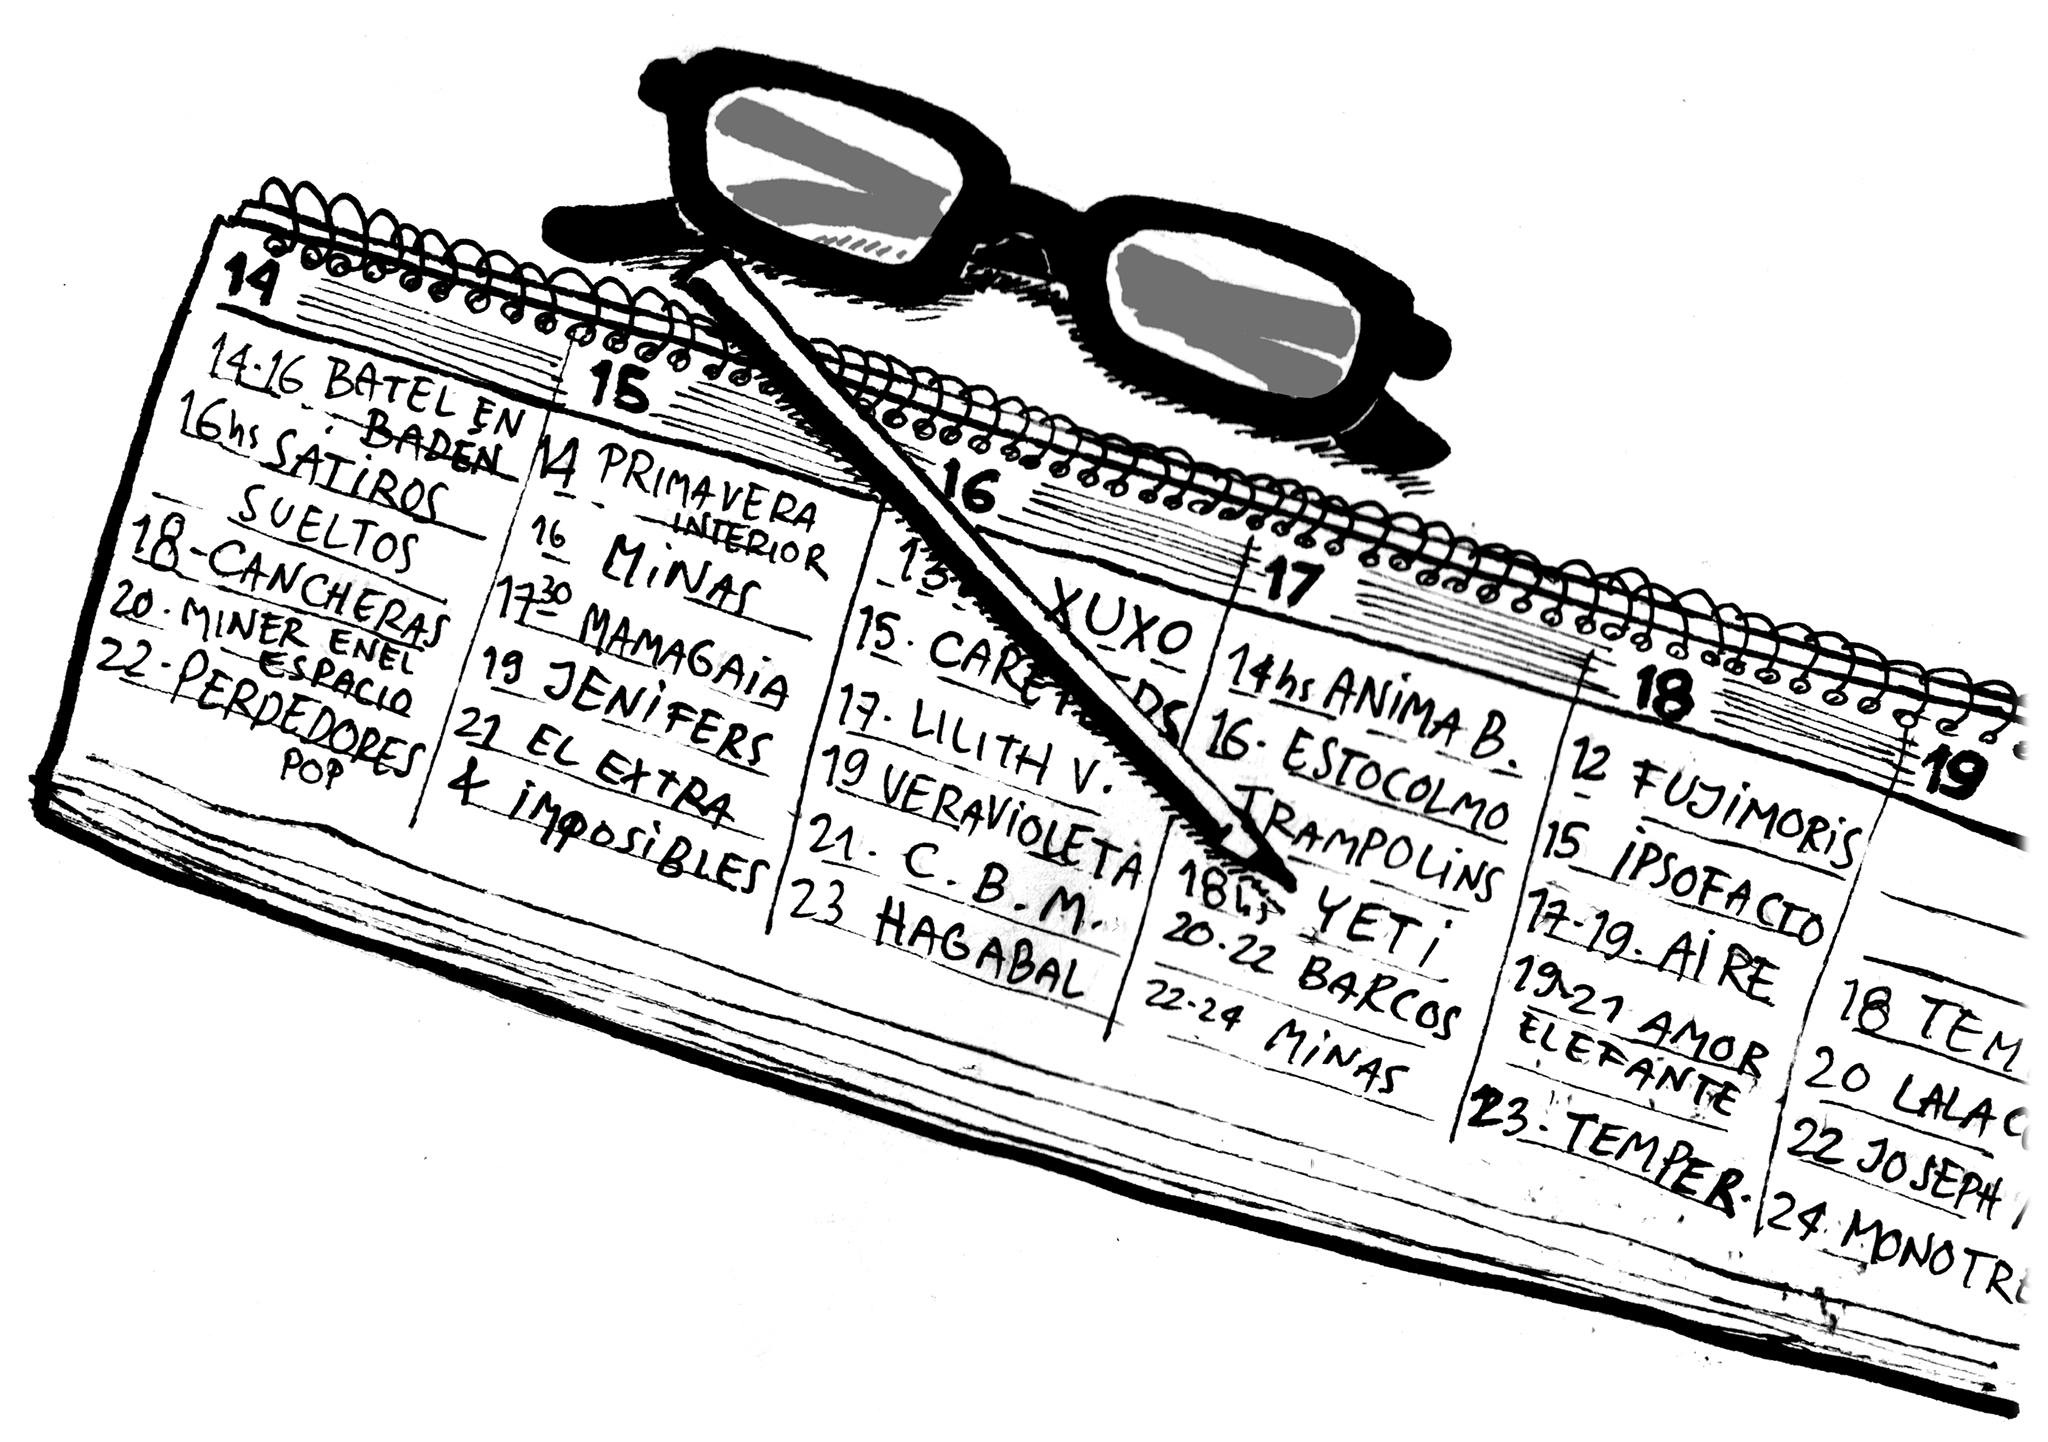 14
14-16 BATEL EN
BADEN
16hs SATIROS
SUELTOS
18-CANCHERAS
20. MINER EN EL
ESPACIO
22-PERDEDORES
POP
15
14 PRIMAVERA
INTERIOR
16 MiNAS
17 30 MAMAGAiA
19 JENiFERS
21 EL EXTRA
& iMPOSiBLES
16
XUXO
15.
17. LILITH V.
19 VERAVIOLETA
21. C. B. M.
23 HAGABAL
17
14hs ANiMA B.
16. ESTOCOLMO
TRAMPOLiNS
18hs YETi
20.22 BARCOS
22-24 MiNAS
18
12 FUJiMORiS
15 iPSOFACTO
17-19. AiRE
19-21 AMOR
ELEFANTE
23. TEMPER.
19
18 TEM
20 LALA
22 JOSEPH
24. MONOTR